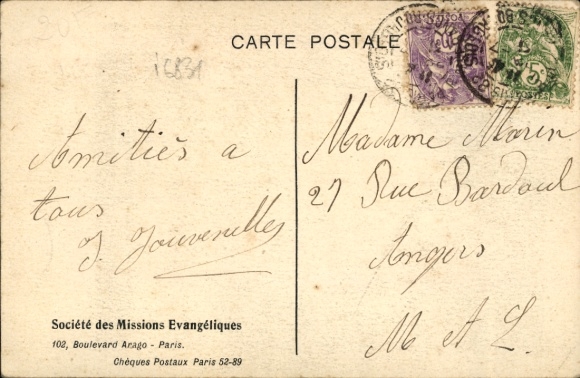 CARTE POSTALE
16831
Amitiés a
tous
J. Jouvenelles
Madame Morin
27 Rue Bardoul
Angers
M et L.
Société des Missions Evangéliques
102, Boulevard Arago - Paris.
Chèques Postaux Paris 52-89